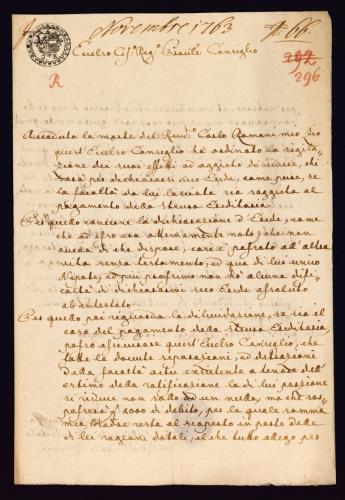 Novembre 1763
N. 66.
292
296
R
Eccelso Ces. Reg. Giud.le Consiglio
Accaduta la morte del Rev. Carlo Romani mio Zio
quest' Eccelso Consiglio hà ordinato la
zione dei suoi effetti ad oggetto di
per dichiararsi suo Erede, come pure, se
la facoltà da lui lasciata sia soggetta al
pagamento della stessa Ereditaria.
Per quello concerne la dichiarazione d' Erede, come
che ad esso era ottimamente noto, che non
aveva di che disporre, cosi è passato all' altra
vita senza testamento, ed qua di lui unico
Nipote, ed più prossimo non hò alcuna diffi-
coltà di dichiararmi suo Erede assoluto
ab intestato.
Per quello poi riguarda la dilucidazione, se sia il
caro del pagamento della stessa Ereditaria,
posso assicurare quest' Eccelso Consiglio, che
fatte le dovute separazioni, ed detrazioni
della facoltà activa existente a tenore dell'
estimo della ratificazione la di lui porzione
si riduce non solo ad un nulla, ma che sor-
passa 2000 di debito, per la quale somma
mia Madre resta al scoperto in parte delle
di lei ragioni dotali, il che tutto allego per